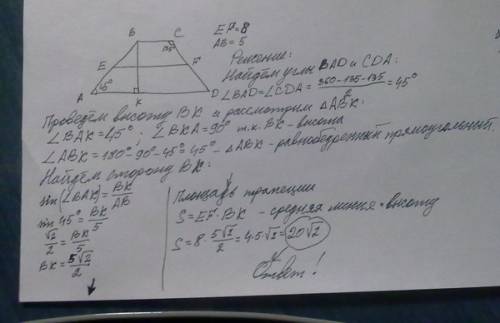 B C
135°
E F
A 45° K D
EF=8
AB=5
Решение:
Найдём углы BAD и CDA:
∠BAD=∠CDA= (360-135-135)/2 =45°
Проведём высоту BK и рассмотрим △ABK:
∠BAK=45°; ∠BKA=90° т.к. BK - высота
∠ABK=180°-90°-45°=45° - △ABK - равнобедренный прямоугольный,
Найдём сторону BK:
sin(∠BAK)=BK/AB
sin 45°=BK/5
√2/2=BK/5
BK=5√2/2
Площадь трапеции
S=EF·BK - средняя линия · высоту
S=8·5√2/2=4·5√2=20√2
Ответ!